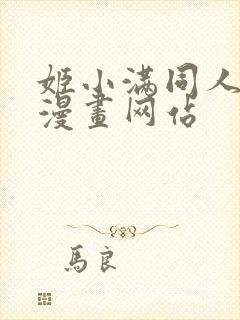 姬小满同人
漫畫网佔
馬良